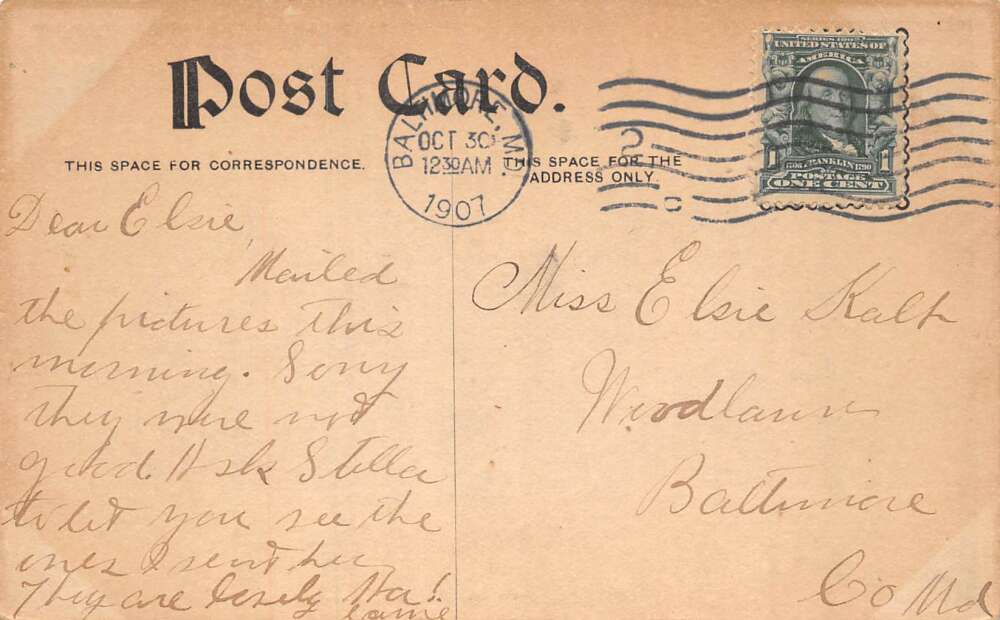 Post Card.
THIS SPACE FOR CORRESPONDENCE.
THIS SPACE FOR THE
ADDRESS ONLY.
BALTIMORE, MD.
OCT 30
12 30 AM
1907
SERIES 1902
UNITED STATES OF
AMERICA
1 FRANKLIN 1
POSTAGE
ONE CENT
Dear Elsie
Mailed
the pictures this
morning. Sorry
they were not
good. Ask Stella
to let you see the
ones I sent her
They are lovely Ha!
Miss Elsie Kalb
Woodlawn
Baltimore
Co Md